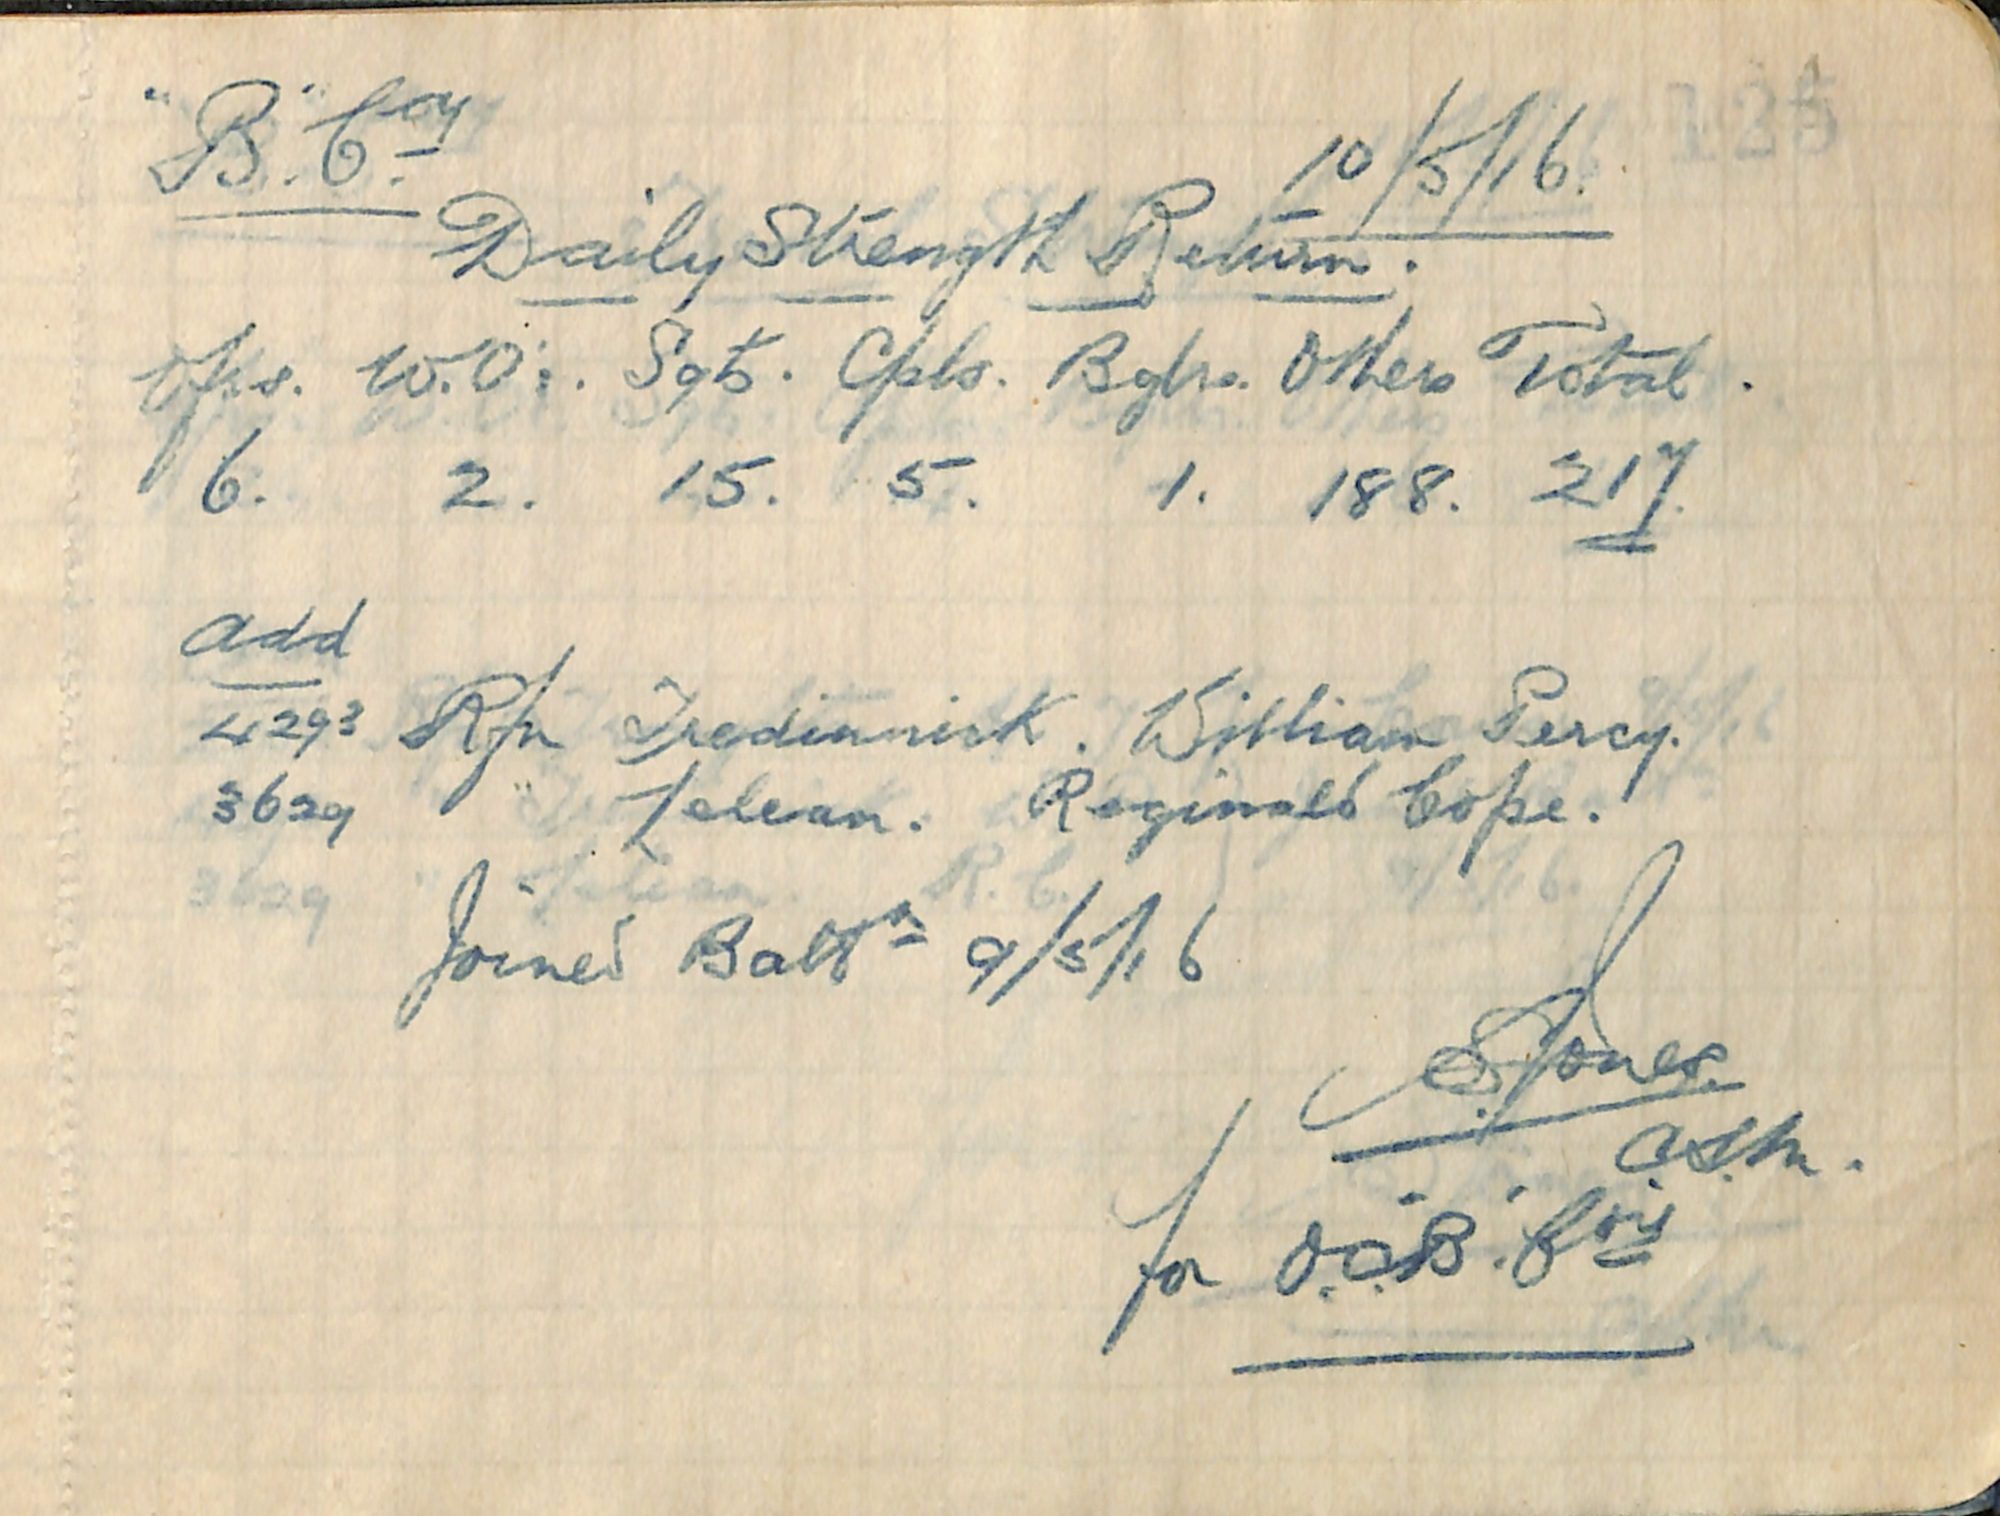 "B" Coy
10/5/16.
Daily Strength Return.
Ofrs. W.O's. Sgts. Cpls. Bglrs. Others Total.
6. 2. 15. 5. 1. 188. 217.
Add
4293 Rfn Tredinnick. William Percy.
3629 " Zelean. Reginald Cope.
Joined Battn 9/5/16
SJones
C.S.M.
for O.C. "B" Coy